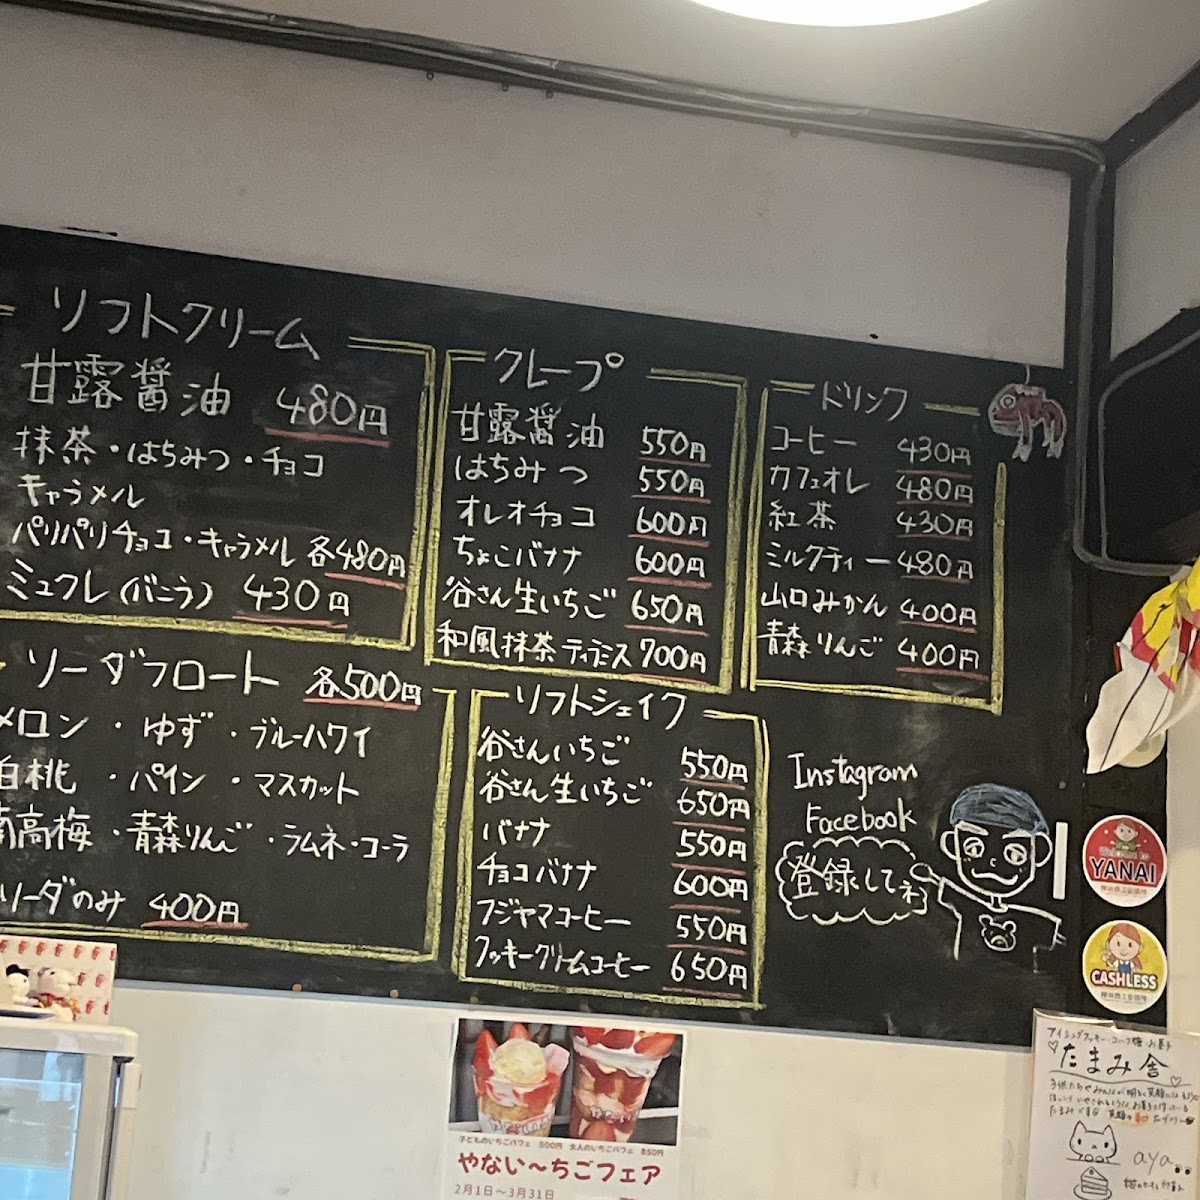 ソフトクリーム
甘露醤油 480円
抹茶・はちみつ・チョコ
キャラメル
パリパリチョコ・キャラメル 各480円
ミュクレ(バニラ) 430円
ソーダフロート 各500円
メロン・ゆず・ブルーハワイ
白桃・パイン・マスカット
南高梅・青森りんご・ラムネ・コーラ
ソーダのみ 400円
クレープ
甘露醤油 550円
はちみつ 550円
オレオチョコ 600円
ちょこバナナ 600円
谷さん生いちご 650円
和風抹茶ティラミス 700円
ソフトシェイク
谷さんいちご 550円
谷さん生いちご 650円
バナナ 550円
チョコバナナ 600円
フジヤマコーヒー 550円
クッキークリームコーヒー 650円
ドリンク
コーヒー 430円
カフェオレ 480円
紅茶 430円
ミルクティー 480円
山口みかん 400円
青森りんご 400円
Instagram
Facebook
登録してネ
Welcome to
YANAI
柳井商工会議所
CASHLESS
柳井商工会議所
子どものいちごパフェ 500円 大人のいちごパフェ 850円
やない〜ちごフェア
2月1日〜3月31日
たまみ舎
aya